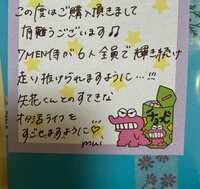 この度はご購入頂きまして
有難うございます♫
7MEN侍が6人全員で輝き続け
走り抜けられますように…!!!
矢花くんとのすてきな
オタ活ライフを
すごせますように♡
mui
チョコ